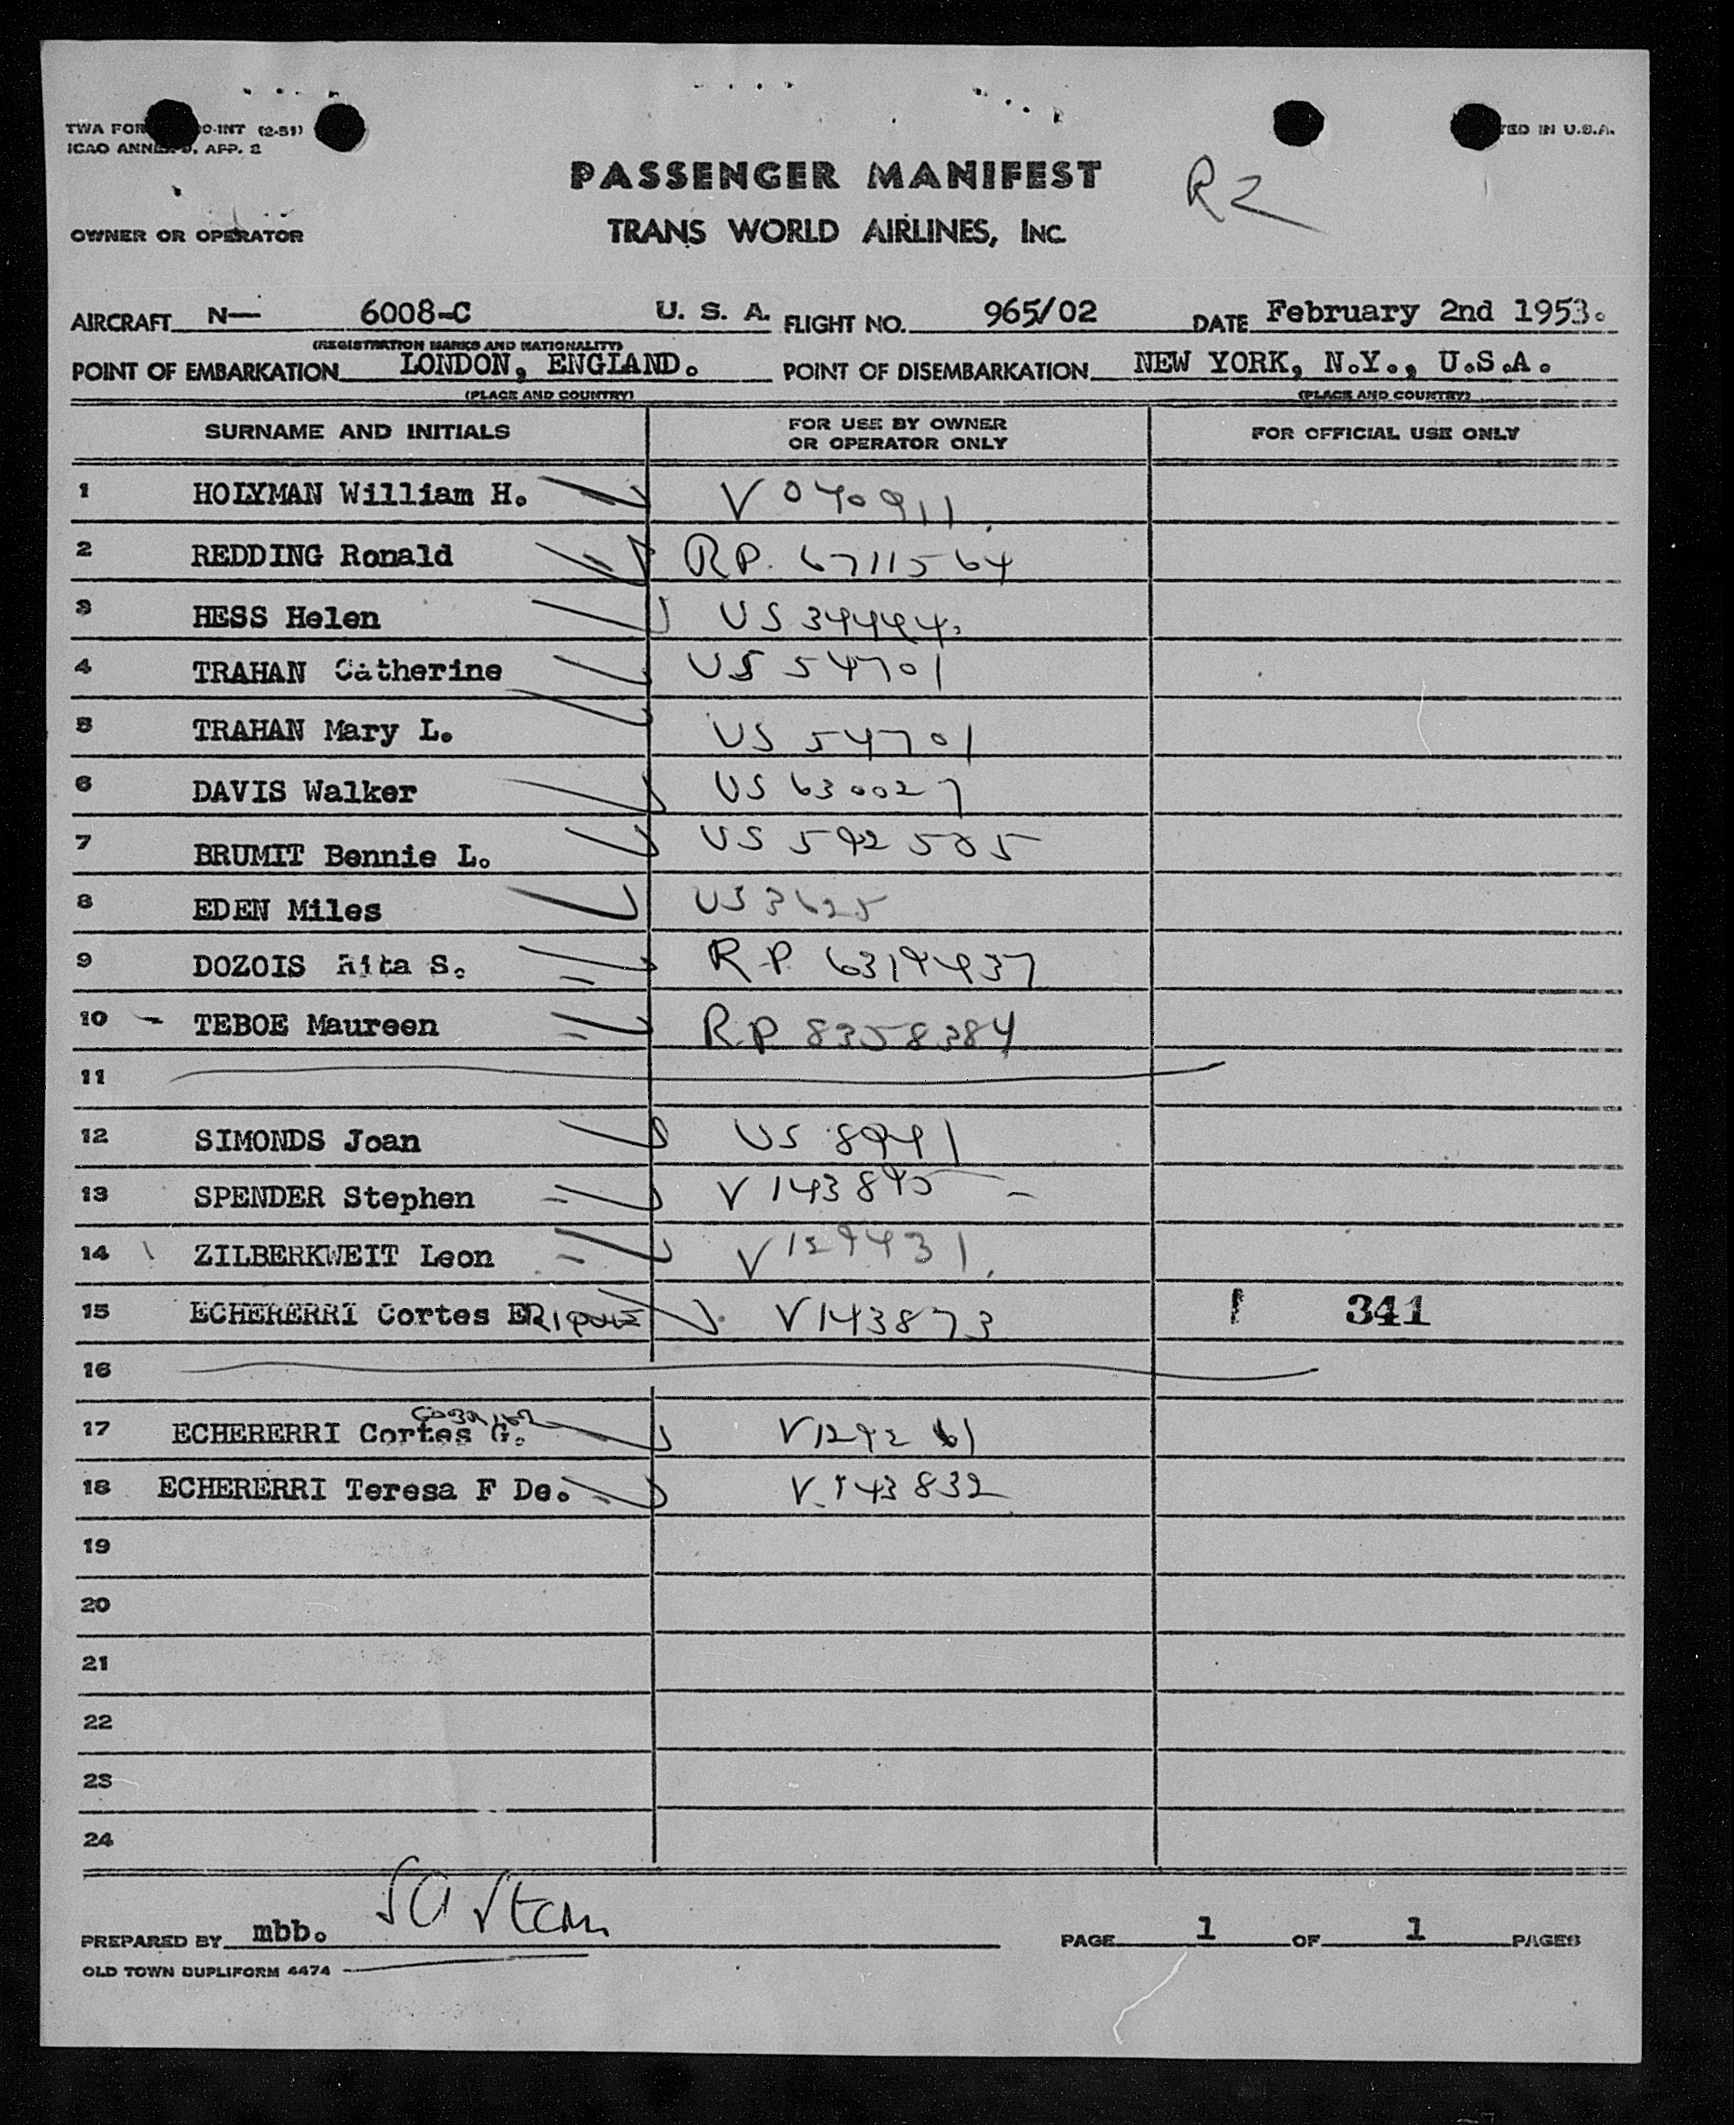 TWA FOR O-INT (2-51)
ICAO ANNEX 9, APP. 2
TED IN U.S.A.
PASSENGER MANIFEST
R2
OWNER OR OPERATOR
TRANS WORLD AIRLINES, INC.
AIRCRAFT N— 6008-C U. S. A. FLIGHT NO. 965/02 DATE February 2nd 1953.
(REGISTRATION MARKS AND NATIONALITY)
POINT OF EMBARKATION LONDON, ENGLAND. POINT OF DISEMBARKATION NEW YORK, N.Y., U.S.A.
(PLACE AND COUNTRY) (PLACE AND COUNTRY)
SURNAME AND INITIALS FOR USE BY OWNER OR OPERATOR ONLY FOR OFFICIAL USE ONLY
1 HOLYMAN William H. V 040911
2 REDDING Ronald RP. 6711564
3 HESS Helen US 39494
4 TRAHAN Catherine US 54701
5 TRAHAN Mary L. US 54701
6 DAVIS Walker US 630027
7 BRUMIT Bennie L. US 592505
8 EDEN Miles US 3625
9 DOZOIS Rita S. R.P. 6319437
10 - TEBOE Maureen R.P 8358384
11
12 SIMONDS Joan US 8941
13 SPENDER Stephen V 143895
14 ZILBERKWEIT Leon V 129431
15 ECHERERRI Cortes ER V143873 341
16
17 ECHERERRI Cortes G. V129261
18 ECHERERRI Teresa F De. V.143832
19
20
21
22
23
24
PREPARED BY mbb. PAGE 1 OF 1 PAGES
OLD TOWN DUPLIFORM 4474